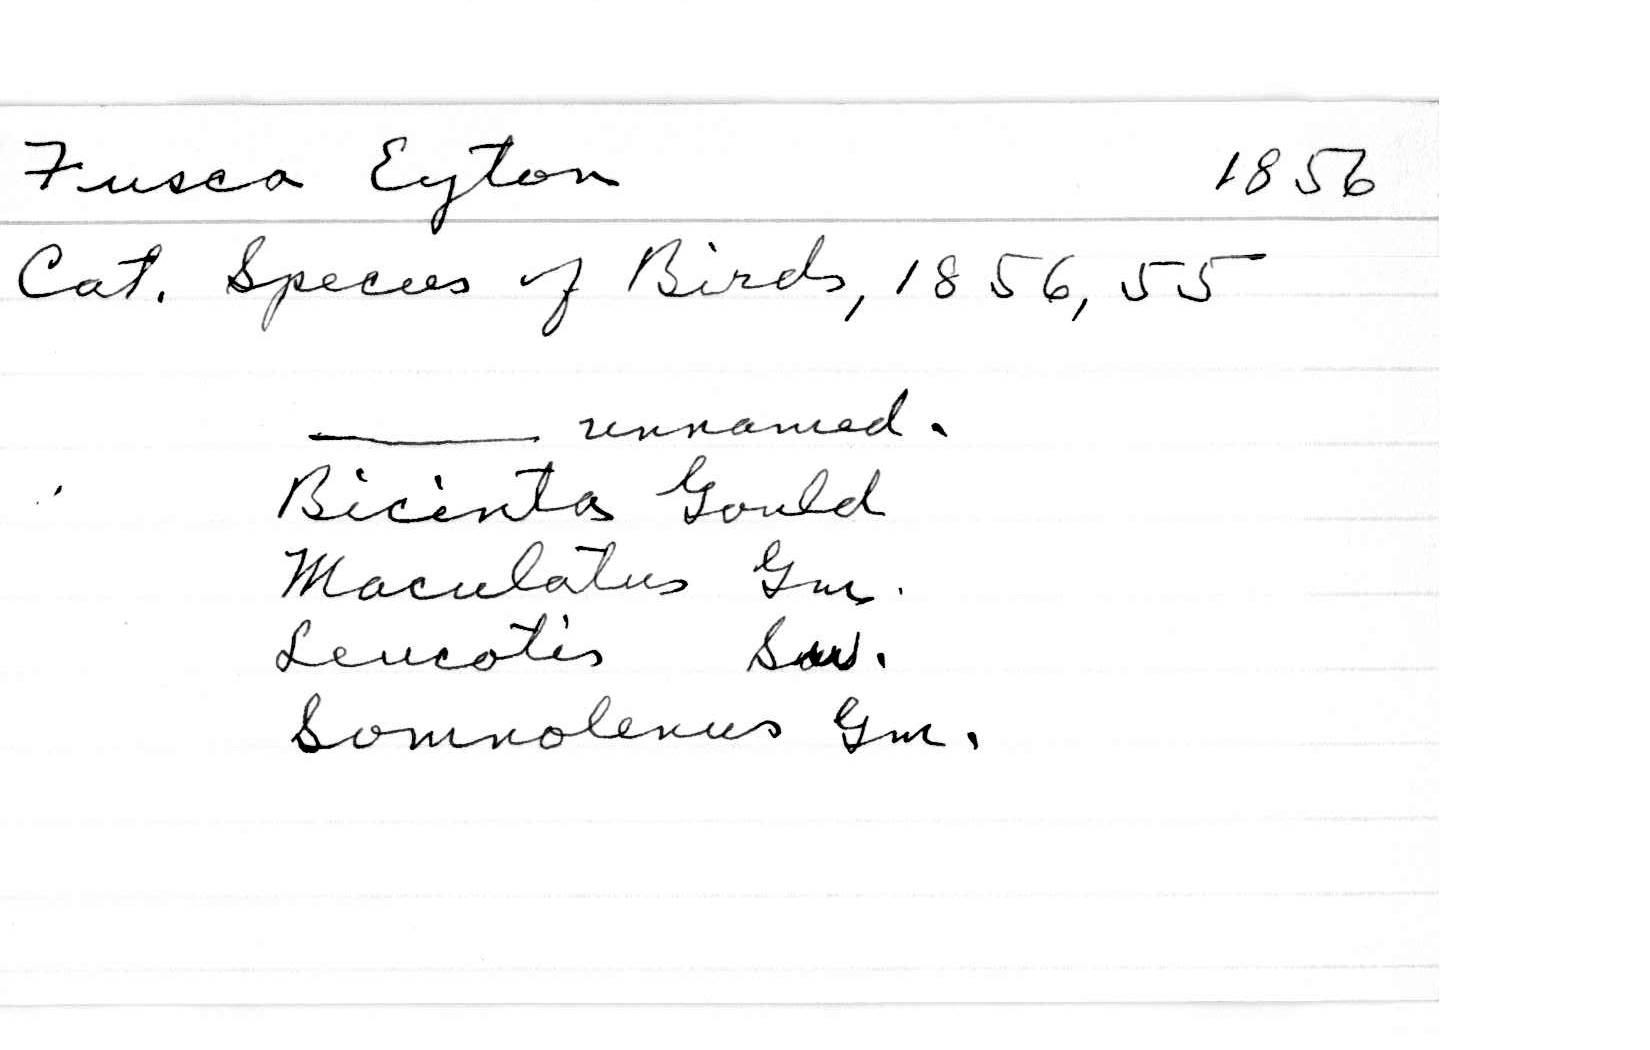 Fusca Eyton 1856
Cat. Species of Birds, 1856, 55
——— unnamed.
Bicinta Gould
Maculatus Gm.
Leucotis Sw.
Somnolenus Gm.